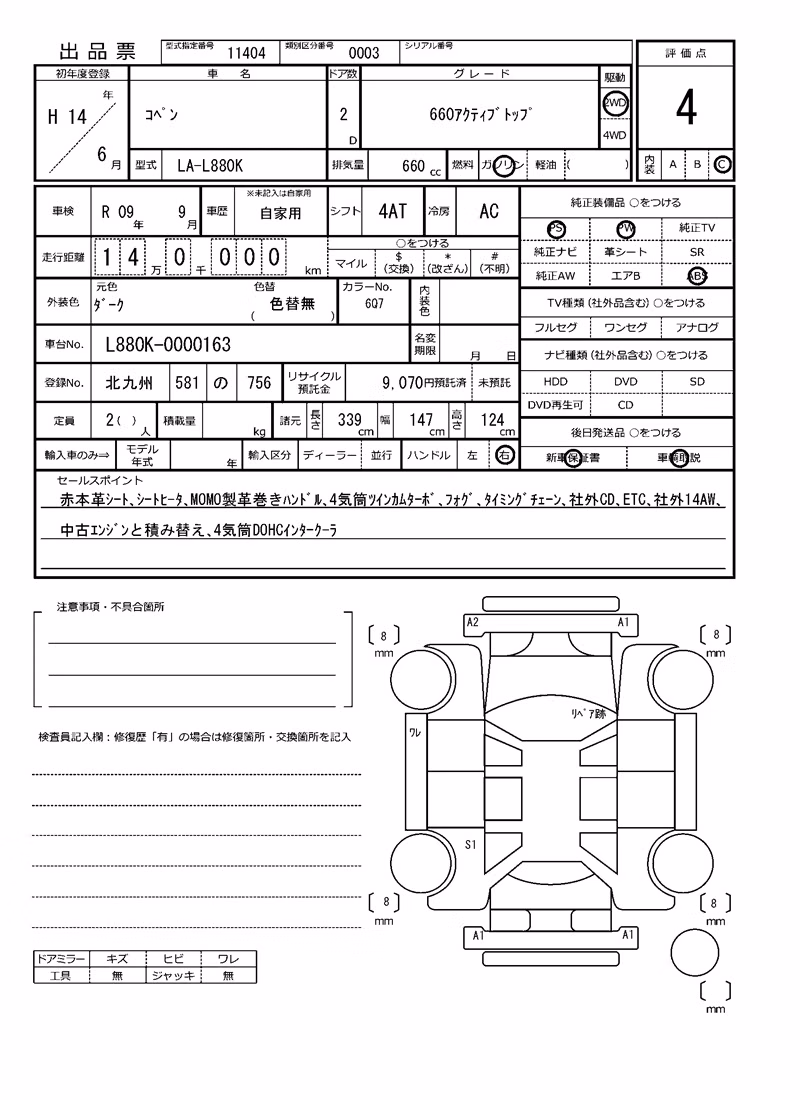 出品票 型式指定番号 11404 類別区分番号 0003 シリアル番号
評価点
初年度登録 車名 ドア数 グレード 駆動
H 14 年 6 月 コペン 2 D 660アクティブトップ 2WD 4WD
4
型式 LA-L880K 排気量 660 cc 燃料 ガソリン 軽油 ( )
内装 A B C
車検 R 09 年 9 月 車歴 ※未記入は自家用 自家用 シフト 4AT 冷房 AC
純正装備品 ○をつける
PS PW 純正TV
純正ナビ 革シート SR
純正AW エアB ABS
走行距離 1 4 万 0 千 0 0 0 km
○をつける
マイル $ (交換) * (改ざん) # (不明)
外装色 元色 ダーク 色替 ( 色替無 ) カラーNo. 6Q7 内装色
TV種類(社外品含む)○をつける
フルセグ ワンセグ アナログ
車台No. L880K-0000163 名変期限 月 日
ナビ種類(社外品含む)○をつける
HDD DVD SD
DVD再生可 CD
登録No. 北九州 581 の 756 リサイクル預託金 9,070円預託済 未預託
定員 2( ) 人 積載量 kg 諸元 長さ 339 cm 幅 147 cm 高さ 124 cm
後日発送品 ○をつける
新車保証書 車輌取説
輸入車のみ⇒ モデル年式 年 輸入区分 ディーラー 並行 ハンドル 左 右
セールスポイント
赤本革シート、シートヒータ、MOMO製革巻きハンドル、4気筒ツインカムターボ、フォグ、タイミングチェーン、社外CD、ETC、社外14AW、
中古エンジンと積み替え、4気筒DOHCインタークーラ
注意事項・不具合箇所
検査員記入欄:修復歴「有」の場合は修復箇所・交換箇所を記入
ドアミラー キズ ヒビ ワレ
工具 無 ジャッキ 無
A2 A1
8 mm
8 mm
リペア跡
ワレ
S1
8 mm
8 mm
A1 A1
mm